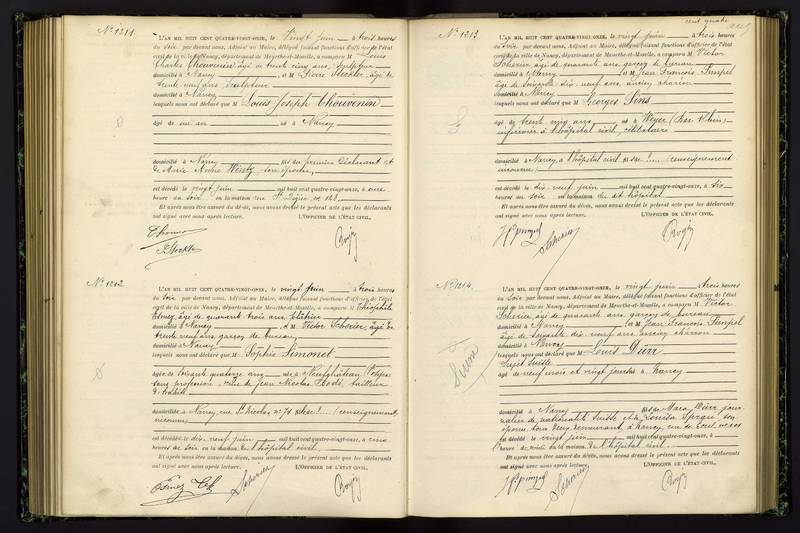 Nº 1211.
L'AN MIL HUIT CENT QUATRE-VINGT-ONZE, le vingt juin à trois heures
du soir par devant nous, Adjoint au Maire, délégué faisant fonctions d'officier de l'état
civil de la ville de Nancy, département de Meurthe-et-Moselle, a comparu M Louis
Charles Thouvenin âgé de trente cinq ans, sculpteur
domicilié à Nancy et M Pierre Stockler, âgé de
trente neuf ans, sculpteur
domicilié à Nancy
lesquels nous ont déclaré que M Louis Joseph Thouvenin
âgé de un an né à Nancy
domicilié à Nancy fils du premier déclarant et
de Marie son épouse,
est décédé le vingt juin mil huit cent quatre-vingt-onze, à onze
heures du soir en sa maison rue St Dizier, nº 128
Et après nous être assuré du décès, nous avons dressé le présent acte que les déclarants
ont signé avec nous après lecture. L'OFFICIER DE L'ÉTAT CIVIL,
Nº 1212.
L'AN MIL HUIT CENT QUATRE-VINGT-ONZE, le vingt juin à trois heures
du soir par devant nous, Adjoint au Maire, délégué faisant fonctions d'officier de l'état
civil de la ville de Nancy, département de Meurthe-et-Moselle, a comparu M Théophile
âgé de quarante trois ans, plâtrier
domicilié à Nancy et M Victor Scherier âgé de
trente neuf ans, garçon de bureau
domicilié à Nancy
lesquels nous ont déclaré que M Sophie Simonet
âgée de soixante quatorze ans née à Neufchâteau (Vosges
sans profession, veuve de Jean Nicolas tailleur
d'habits
domicilié à Nancy, rue St Nicolas nº 74 (renseignement
inconnu)
est décédée le dix neuf juin mil huit cent quatre-vingt-onze, à cinq
heures du soir en la maison de l'hôpital civil
Et après nous être assuré du décès, nous avons dressé le présent acte que les déclarants
ont signé avec nous après lecture. L'OFFICIER DE L'ÉTAT CIVIL,
Scherier
cent quatre
Nº 1213
L'AN MIL HUIT CENT QUATRE-VINGT-ONZE, le vingt juin à trois heures
du soir par devant nous, Adjoint au Maire, délégué faisant fonctions d'officier de l'état
civil de la ville de Nancy, département de Meurthe-et-Moselle, a comparu M Victor
Scherier âgé de quarante ans, garçon de bureau
domicilié à Nancy et M Jean François Pimpel
âgé de soixante dix neuf ans, ancien charron
domicilié à Nancy
lesquels nous ont déclaré que M Georges Sins
âgé de trente cinq ans né à Weyer (Bas Rhin)
infirmier à l'hôpital civil, célibataire
domicilié à Nancy à l'hôpital civil fils de .... (renseignement
inconnu)
est décédé le dix neuf juin mil huit cent quatre-vingt-onze, à six
heures du soir en la maison du dit hôpital
Et après nous être assuré du décès, nous avons dressé le présent acte que les déclarants
ont signé avec nous après lecture. L'OFFICIER DE L'ÉTAT CIVIL,
Scherier
Nº 1214.
L'AN MIL HUIT CENT QUATRE-VINGT-ONZE, le vingt juin à trois heures
du soir par devant nous, Adjoint au Maire, délégué faisant fonctions d'officier de l'état
civil de la ville de Nancy, département de Meurthe-et-Moselle, a comparu M Victor
Scherier âgé de quarante ans, garçon de bureau
domicilié à Nancy et M Jean François Pimpel
âgé de soixante dix neuf ans ancien charron
domicilié à Nancy
lesquels nous ont déclaré que M Louis Dürr
sujet Suisse
âgé de neuf mois et vingt jours né à Nancy
domicilié à Nancy fils de Marc Dürr, jour-
nalier de nationalité suisse et de Louisa son
épouse tous deux demeurant à Nancy, rue de
est décédé le vingt juin mil huit cent quatre-vingt-onze, à
heure de en la maison de l'hôpital civil
Et après nous être assuré du décès, nous avons dressé le présent acte que les déclarants
ont signé avec nous après lecture. L'OFFICIER DE L'ÉTAT CIVIL,
Scherier